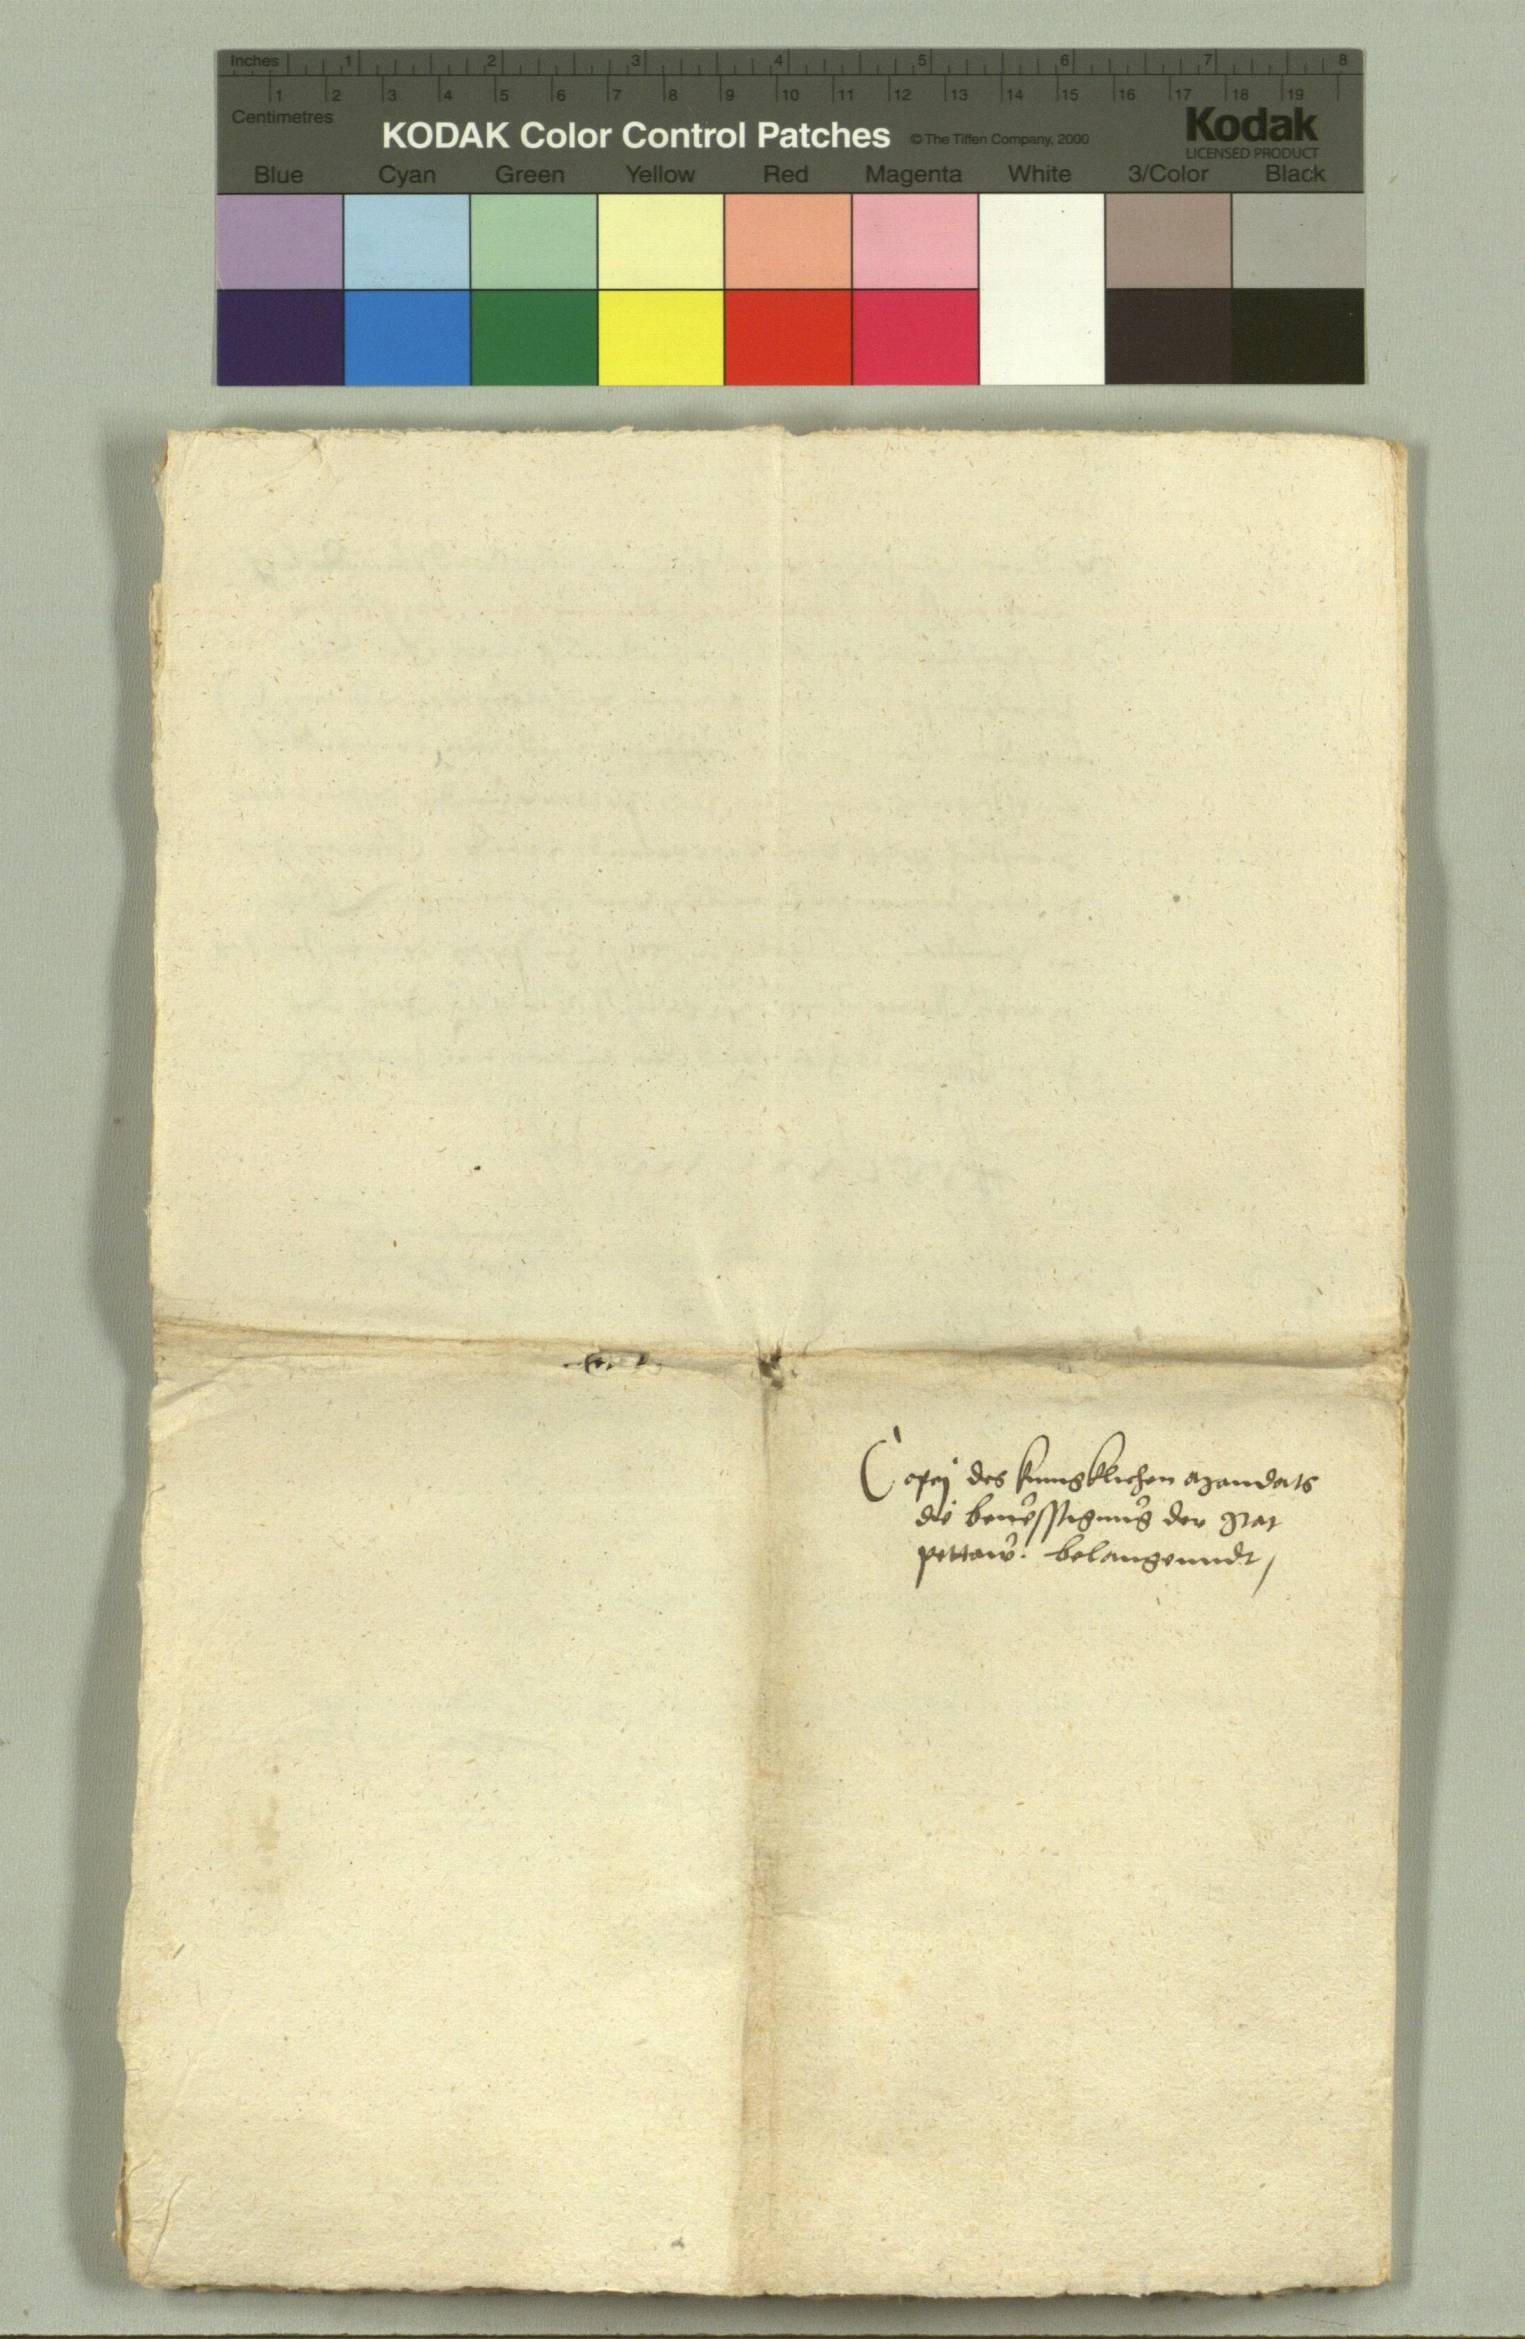 Inches 1 2 3 4 5 6 7 8
1 2 3 4 5 6 7 8 9 10 11 12 13 14 15 16 17 18 19
Centimetres
KODAK Color Control Patches © The Tiffen Company, 2000 Kodak
LICENSED PRODUCT
Blue Cyan Green Yellow Red Magenta White 3/Color Black
Copej des kunigklichen Mandats
die beuesstigung der Stat
pettaw. belangenndt /